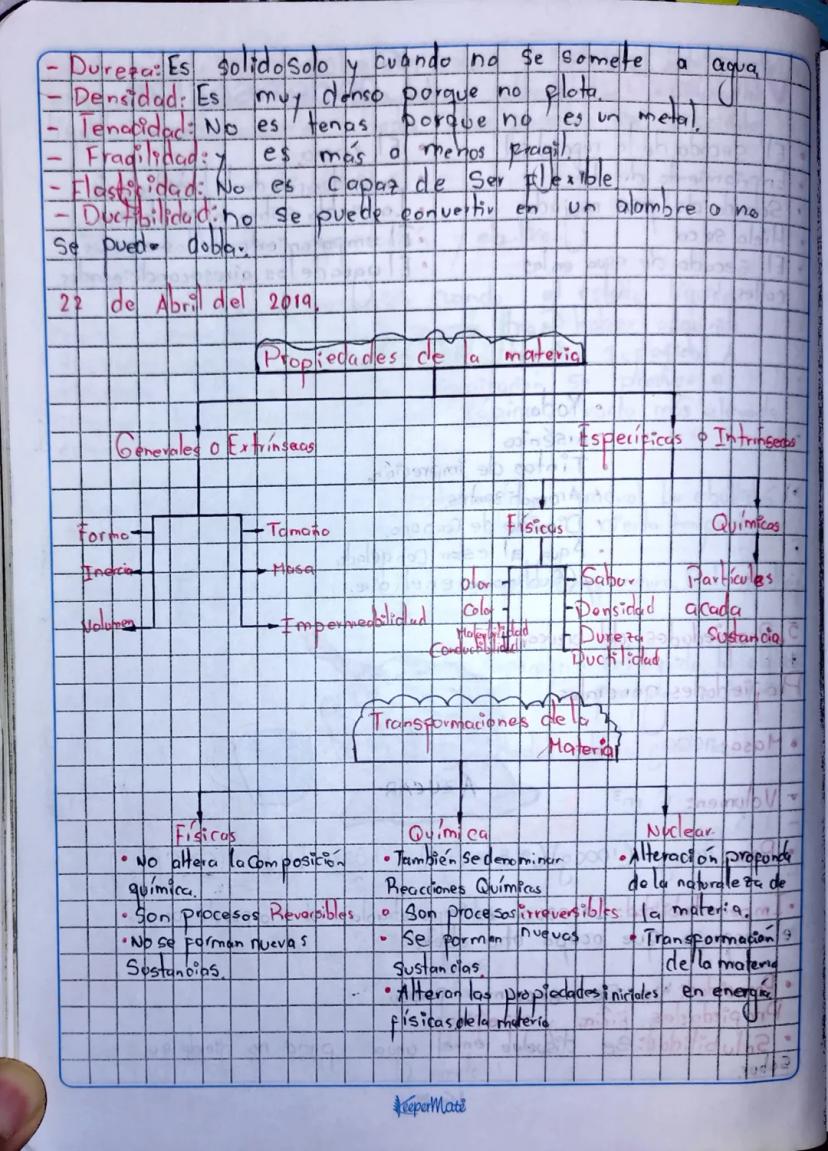 - Dureza: Es solido solo y cuando no se somete a agua
- Densidad: Es muy denso porque no flota.
- Tenacidad: No es tenas porque no es un metal.
- Fragilidad: y es más o menos fragil.
- Elasticidad: No es capaz de ser flexible
- Ductibilidad: no se puede convertir en un alambre o no
se puede doblar.
22 de Abril del 2019.
Propiedades de la materia
Generales o Extrínsecas
Específicas o Intrínsecas
Forma
Tamaño
Inercia
Masa
Volumen
Impermeabilidad
Físicas
Químicas
Olor
Sabor
Color
Densidad
Maleabilidad
Dureza
Conductibilidad
Ductilidad
Partículas
a cada
Sustancia
Transformaciones de la
Materia
Físicas
• No altera la composición
química.
• Son procesos Reversibles
• No se forman nuevas
Sustancias.
Química
• También se denominan
Reacciones Químicas
• Son procesos irreversibles
• Se forman nuevas
sustancias.
• Alteran las propiedades iniciales
físicas de la materia
Nuclear
• Alteración profunda
de la naturaleza de
la materia.
• Transformación
de la materia
en energía
KeeperMate